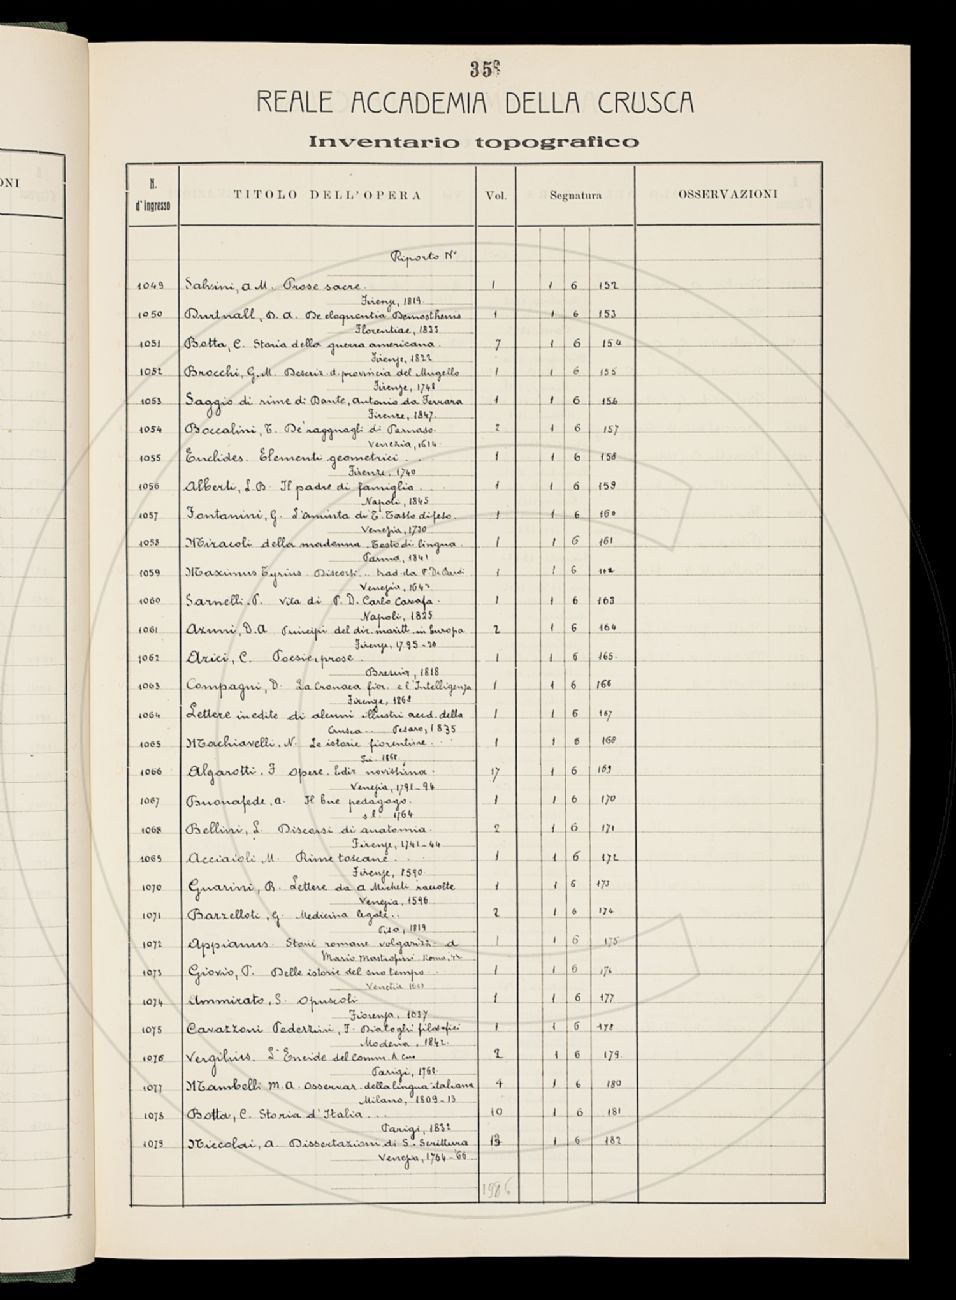 ONI
35
REALE ACCADEMIA DELLA CRUSCA
Inventario topografico
N. d'Ingresso TITOLO DELL'OPERA Vol. Segnatura OSSERVAZIONI
Riporto N°
1049 Salvini, A M. Prose sacre. 1 1 6 152
Firenze, 1819.
1050 D. A. De eloquentia Demosthenis 1 1 6 153
Florentiae, 1835
1051 Botta, C. Storia della guerra americana. 7 1 6 154
Firenze, 1822
1052 Brocchi, G. M. Descriz. d. provincia del Mugello 1 1 6 155
Firenze, 1748
1053 Saggio di rime di Dante, Antonio da Ferrara 1 1 6 156
Firenze, 1847.
1054 Boccalini, T. De' ragguagli di Parnaso. 2 1 6 157
Venezia, 1614
1055 Euclides. Elementi geometrici . . 1 1 6 158
Firenze, 1740
1056 Alberti, L. B. Il padre di famiglia . . . 1 1 6 159
Napoli, 1845
1057 Fontanini, G. L'Aminta di T. Tasso difeso. 1 1 6 160
Venezia, 1730
1058 Miracoli della madonna. Testo di lingua. 1 1 6 161
Parma, 1841
1059 Maximus Tyrius. Discorsi .. trad. da P. De Bardi 1 1 6 162
Venezia, 1642
1060 Sarnelli, P. Vita di P. D. Carlo Carafa. 1 1 6 163
Napoli, 1835
1061 Azuni, D. A Principi del dir. maritt. in Europa 2 1 6 164
Firenze, 1795-96
1062 Arici, C. Poesie, prose . 1 1 6 165
Brescia, 1818
1063 Compagni, D. La Cronaca fior. e l'Intelligenza 1 1 6 166
Firenze, 1868
1064 Lettere inedite di alcuni illustri accd. della 1 1 6 167
Crusca .. Pesaro, 1835
1065 Machiavelli, N. Le istorie fiorentine. 1 1 6 168
1066 Algarotti, F Opere. Ediz novissima. 17 1 6 169
Venezia, 1791-94
1067 Buonafede, A. Il bue pedagogo. 1 1 6 170
s. l. 1764
1068 Bellini, L. Discorsi di anatomia. 2 1 6 171
Firenze, 1741-44
1069 Acciaioli M. Rime toscane . . . 1 1 6 172
Firenze, 1590
1070 Guarini, B. Lettere da A Micheli raccolte 1 1 6 173
Venezia, 1596
1071 Barzellotti, G. Medicina legale.. 2 1 6 174
Pisa, 1819
1072 Appianus. Storie romane volgarizz. d 1 1 6 175
Marco Mastrofini Roma,
1073 Giovio, P. Delle istorie del suo tempo . 1 1 6 176
Venetia
1074 Ammirato, S. Opuscoli 1 1 6 177
Fiorenza, 1637
1075 Cavazzoni Pederzini, F. Dialoghi filosofici 1 1 6 178
Modena, 1842.
1076 Vergilius. L'Eneide del Comm. A Caro 2 1 6 179
Parigi, 1760
1077 Mambelli M. A. Osservaz. della lingua italiana 4 1 6 180
Milano, 1809-13
1078 Botta, C. Storia d'Italia . . . 10 1 6 181
Parigi, 1832
1079 Niccolai, A. Dissertazioni di S. Scrittura 13 1 6 182
Venezia, 1764-66